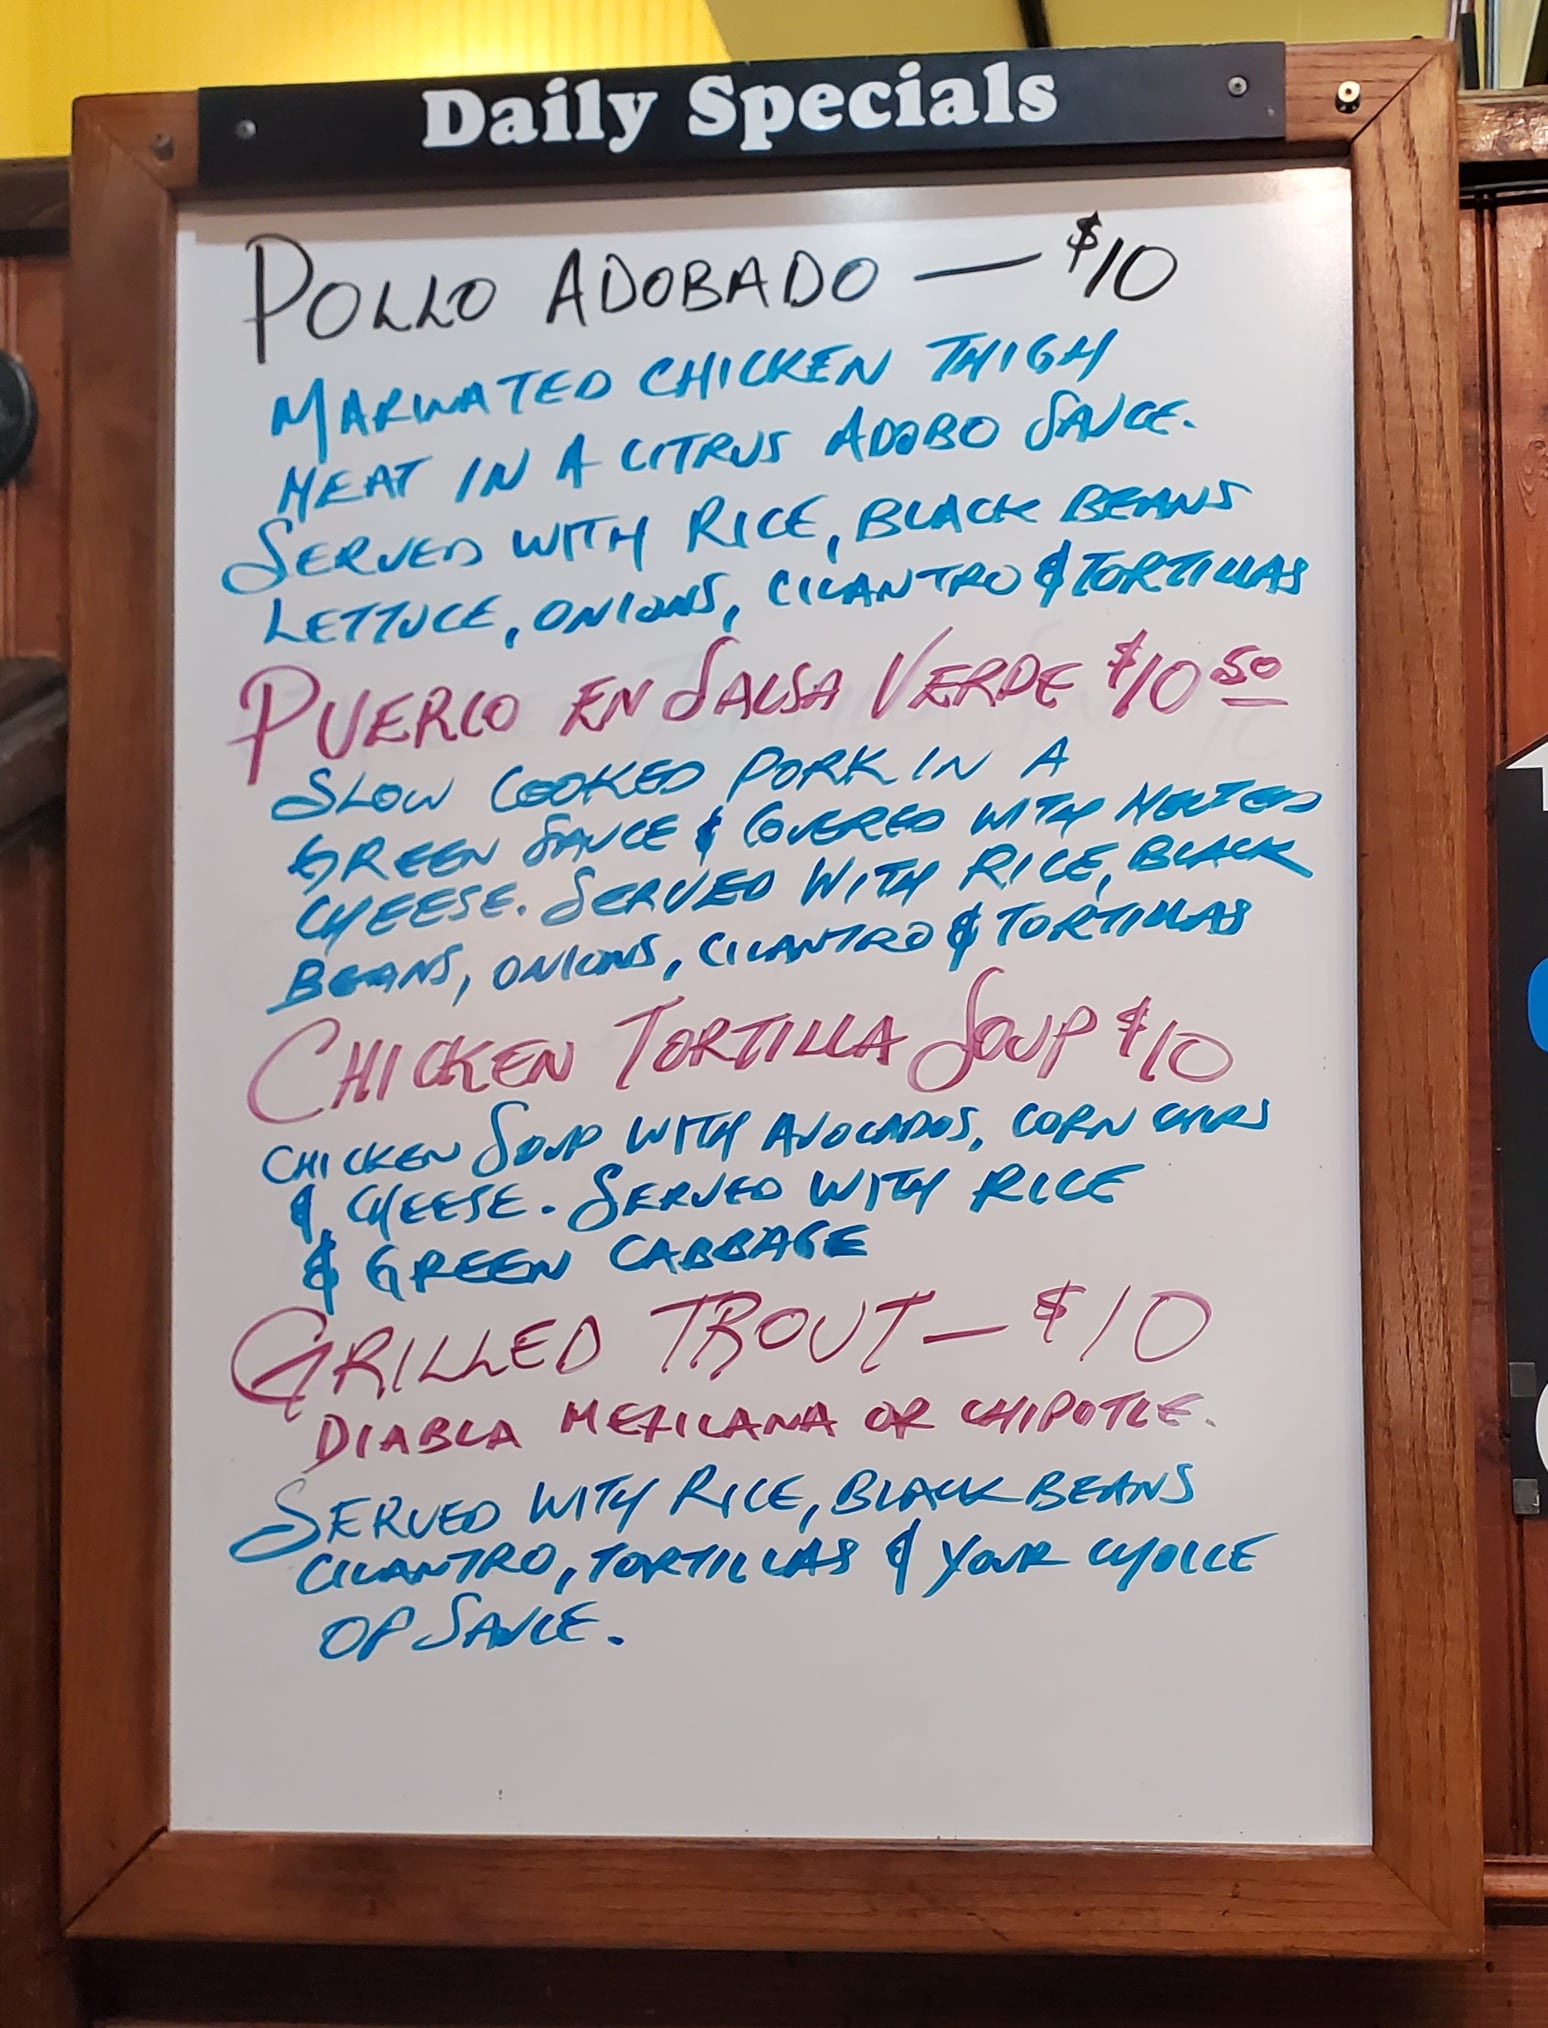 Daily Specials
POLLO ADOBADO — $10
MARINATED CHICKEN THIGH
MEAT IN A CITRUS ADOBO SAUCE.
SERVED WITH RICE, BLACK BEANS
LETTUCE, ONIONS, CILANTRO & TORTILLAS
PUERCO EN SALSA VERDE $10 50
SLOW COOKED PORK IN A
GREEN SAUCE & COVERED WITH MELTED
CHEESE. SERVED WITH RICE, BLACK
BEANS, ONIONS, CILANTRO & TORTILLAS
CHICKEN TORTILLA SOUP $10
CHICKEN SOUP WITH AVOCADOS, CORN CHIPS
& CHEESE. SERVED WITH RICE
& GREEN CABBAGE
GRILLED TROUT — $10
DIABLA MEXICANA OR CHIPOTLE.
SERVED WITH RICE, BLACK BEANS
CILANTRO, TORTILLAS & YOUR CHOICE
OF SAUCE.